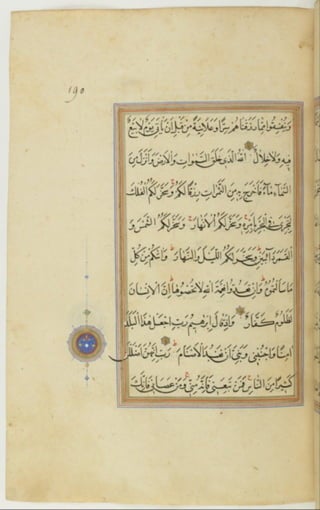 190
وَيُنْفِقُوا مِمَّا رَزَقْنَاهُمْ سِرًّا وَعَلَانِيَةً مِنْ قَبْلِ اَنْ يَأْتِيَ يَوْمٌ لَا بَيْعٌ
فِيهِ وَلَا خِلَالٌ اَللهُ الَّذِى خَلَقَ السَّمٰوَاتِ وَالْاَرْضَ وَاَنْزَلَ مِنَ
السَّمَاءِ مَاءً فَاَخْرَجَ بِهِ مِنَ الثَّمَرَاتِ رِزْقًا لَكُمْ وَسَخَّرَ لَكُمُ الْفُلْكَ
لِتَجْرِىَ فِى الْبَحْرِ بِاَمْرِهِ وَسَخَّرَ لَكُمُ الْاَنْهَارَ وَسَخَّرَ لَكُمُ الشَّمْسَ وَ
الْقَمَرَ دَائِبَيْنِ وَسَخَّرَ لَكُمُ اللَّيْلَ وَالنَّهَارَ وَاٰتٰيكُمْ مِنْ كُلِّ
مَا سَاَلْتُمُوهُ وَاِنْ تَعُدُّوا نِعْمَةَ اللهِ لَا تُحْصُوهَا اِنَّ الْاِنْسَانَ
لَظَلُومٌ كَفَّارٌ وَاِذْ قَالَ اِبْرٰهِيمُ رَبِّ اجْعَلْ هٰذَا الْبَلَدَ
اٰمِنًا وَاجْنُبْنِى وَبَنِىَّ اَنْ نَعْبُدَ الْاَصْنَامَ رَبِّ اِنَّهُنَّ اَضْلَلْنَ
كَثِيرًا مِنَ النَّاسِ فَمَنْ تَبِعَنِى فَاِنَّهُ مِنِّى وَمَنْ عَصَانِى فَاِنَّكَ